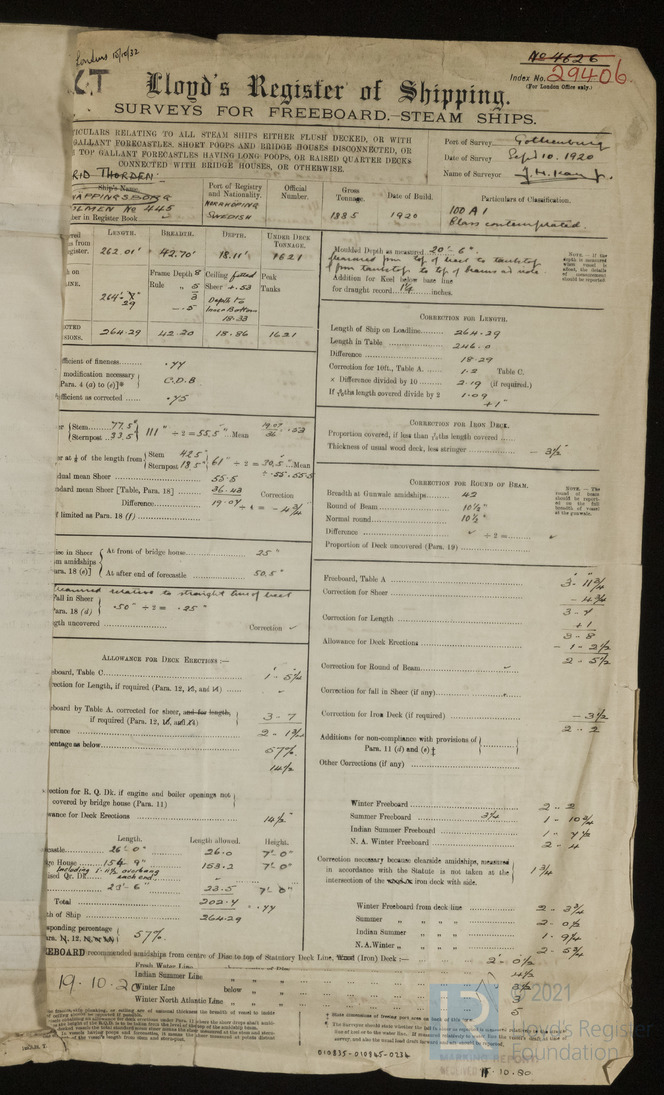 London 15/10/32
No 4626
Index No. 29406.
(For London Office only.)
Lloyd's Register of Shipping.
SURVEYS FOR FREEBOARD.—STEAM SHIPS.
TICULARS RELATING TO ALL STEAM SHIPS EITHER FLUSH DECKED, OR WITH
GALLANT FORECASTLES, SHORT POOPS AND BRIDGE HOUSES DISCONNECTED, OR
TOP GALLANT FORECASTLES HAVING LONG POOPS, OR RAISED QUARTER DECKS
CONNECTED WITH BRIDGE HOUSES, OR OTHERWISE.
Port of Survey Gothenburg
Date of Survey Sept 10. 1920
Name of Surveyor
RID THORDEN
Ship's Name
Port of Registry and Nationality.
Official Number.
Gross Tonnage.
Date of Build.
Particulars of Classification.
HOLMEN No 445
ber in Register Book
NORRKÖPING
SWEDISH
1885
1920
100 A 1
Class contemplated.
LENGTH. BREADTH. DEPTH. UNDER DECK TONNAGE.
262.01' 42.70' 18.11' 1621
Frame Depth 8
Rule „ 5
3
- .5
Ceiling fitted
Sheer + .53
Depth to Inner Bottom
18.33
Peak Tanks
264.29 42.20 18.86 1621
Moulded Depth as measured 20'- 6".
measured from top of keel to tanktop
& from tanktop to top of beams at side
Addition for Keel below base line
for draught record 1¼ inches.
NOTE.—If the depth is measured when vessel is afloat, the details of measurement should be reported
CORRECTION FOR LENGTH.
Length of Ship on Loadline 264.29
Length in Table 246.0
Difference 18.29
Correction for 10ft., Table A. 1.2 Table C.
× Difference divided by 10 2.19 (if required.)
If 6/10ths length covered divide by 2 1.09
+1"
efficient of fineness .77
modification necessary
Para. 4 (a) to (e)]* C.D.B
efficient as corrected .75
er { Stem 77.5"
Sternpost 33.5" } 111" ÷ 2 = 55.5" Mean
er at ⅛ of the length from { Stem 42.5
Sternpost 18.5" } 61" ÷ 2 = 30.5" Mean
dual mean Sheer 55.5
ndard mean Sheer [Table, Para. 18] 36.43 Correction
Difference 19.07 ÷ 4 = - 4¾
f limited as Para. 18 (f)
CORRECTION FOR IRON DECK.
Proportion covered, if less than 7/10ths length covered
Thickness of usual wood deck, less stringer - 3½
CORRECTION FOR ROUND OF BEAM.
Breadth at Gunwale amidships 42
Round of Beam 10½"
Normal round 10½"
Difference ✓ ÷ 2 = ✓
Proportion of Deck uncovered (Para. 19)
NOTE.—The round of beam should be reported on the full breadth of vessel at the gunwale.
ise in Sheer
m amidships
ara. 18 (e)]
At front of bridge house 25"
At after end of forecastle 50.5"
measured relative to straight line of keel
Fall in Sheer
Para. 18 (d) .50" ÷ 2 = .25"
gth uncovered Correction ✓
Freeboard, Table A 3 - 11¾
Correction for Sheer - 4¾
3 - 7
Correction for Length +1
3 - 8
Allowance for Deck Erections - 1 - 2½
2 - 5½
Correction for Round of Beam ✓
Correction for fall in Sheer (if any)
Correction for Iron Deck (if required) - 3½
2 - 2
Additions for non-compliance with provisions of
Para. 11 (d) and (e) ‡
Other Corrections (if any)
ALLOWANCE FOR DECK ERECTIONS :—
eboard, Table C 1 - 5¼
rection for Length, if required (Para. 12, 13, and 14) ✓
eboard by Table A. corrected for sheer, and for length,
if required (Para. 12, 13, and 14) 3 - 7
erence 2 - 1¾
entage as below 57%
14½
ection for R. Q. Dk. if engine and boiler openings not
covered by bridge house (Para. 11)
wance for Deck Erections 14½
Length. Length allowed. Height.
castle 26'- 0" 26.0 7'- 0"
ge House 154. 9" 153.2 7'- 0"
Including 1'-11½ overhang each end
ised Qr. Dk. ✓
23'- 6" 23.5 7'- 0"
Total 202.7
th of Ship 264.29 .77
sponding percentage 57%
Winter Freeboard 2 - 2
Summer Freeboard 3¼ 1 - 10¾
Indian Summer Freeboard 1 - 7½
N. A. Winter Freeboard 2 - 4
Correction necessary because clearside amidships, measured
in accordance with the Statute is not taken at the
intersection of the iron deck with side. 1¾
Winter Freeboard from deck line 2 - 3¾
Summer „ „ „ „ 2 - 0½
Indian Summer „ „ „ 1 - 9¼
N.A. Winter „ „ „ „ 2 - 5¾
EEBOARD recommended amidships from centre of Disc to top of Statutory Deck Line, Wood (Iron) Deck :— 2' - 0½
Fresh Water Line above centre of Disc
Indian Summer Line „ „
19.10.20
Winter Line below „ „
Winter North Atlantic Line „ „
010835-010845-0236
© 2021
Lloyd's Register
Foundation
15.10.80